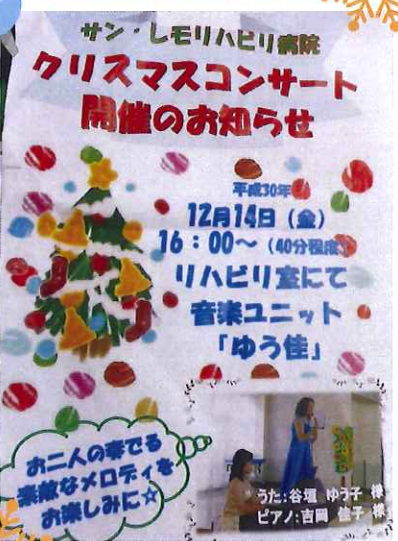 サン・レモリハビリ病院
クリスマスコンサート
開催のお知らせ
平成30年
12月14日（金）
16：00～（40分程度）
リハビリ室にて
音楽ユニット
「ゆう佳」
お二人の奏でる
素敵なメロディを
お楽しみに☆
うた:谷垣 ゆう子 様
ピアノ:吉岡 佳子 様